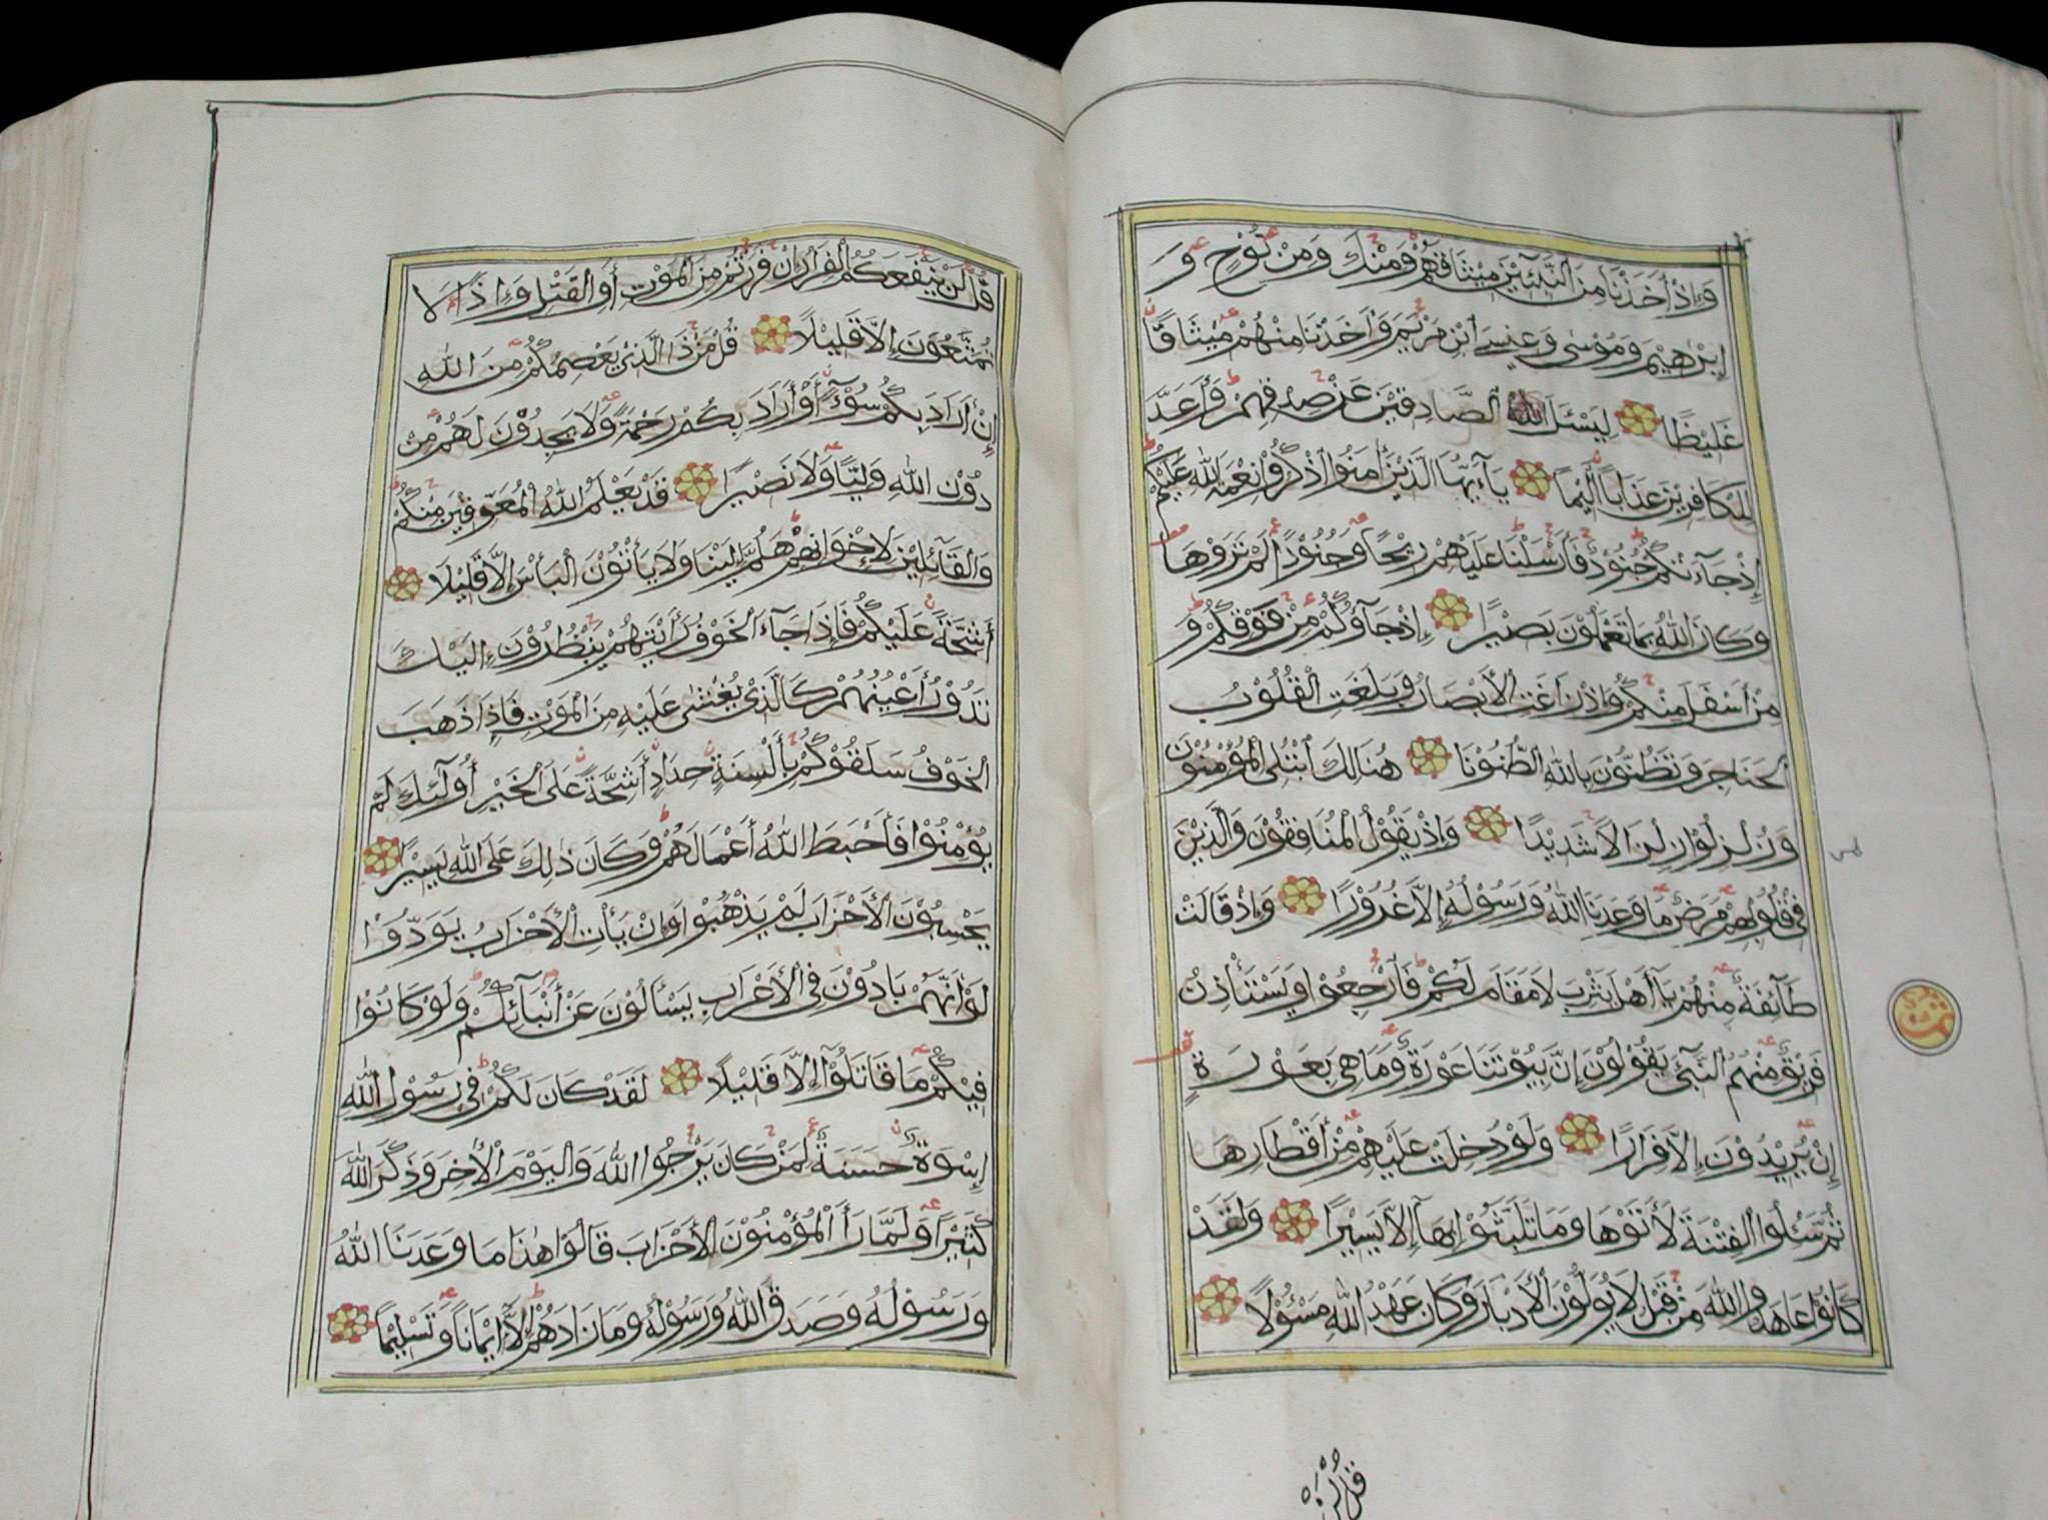 وَإِذْ أَخَذْنَا مِنَ ٱلنَّبِيِّيْنَ مِيْثَاقَهُمْ وَمِنْكَ وَمِنْ نُوْحٍ وَ
إِبْرٰهِيْمَ وَمُوْسٰى وَعِيْسَى ٱبْنِ مَرْيَمَ وَأَخَذْنَا مِنْهُمْ مِيْثَاقًا
غَلِيْظًا لِيَسْئَلَ اللّٰهُ ٱلصَّادِقِيْنَ عَنْ صِدْقِهِمْ وَأَعَدَّ
لِلْكَافِرِيْنَ عَذَابًا أَلِيْمًا يَآأَيُّهَا ٱلَّذِيْنَ أٰمَنُوا ٱذْكُرُوْا نِعْمَةَ اللّٰهِ عَلَيْكُمْ
إِذْ جَآءَتْكُمْ جُنُوْدٌ فَأَرْسَلْنَا عَلَيْهِمْ رِيْحًا وَجُنُوْدًا لَمْ تَرَوْهَا
وَكَانَ اللّٰهُ بِمَا تَعْمَلُوْنَ بَصِيْرًا إِذْ جَآؤُكُمْ مِنْ فَوْقِكُمْ وَ
مِنْ أَسْفَلَ مِنْكُمْ وَإِذْ زَاغَتِ الأَبْصَارُ وَبَلَغَتِ الْقُلُوْبُ
الحَنَاجِرَ وَتَظُنُّوْنَ بِاللّٰهِ الظُّنُوْنَا هُنَالِكَ ٱبْتُلِيَ الْمُؤْمِنُوْنَ
وَزُلْزِلُوْا زِلْزَالًا شَدِيْدًا وَإِذْ يَقُوْلُ الْمُنَافِقُوْنَ وَالَّذِيْنَ
فِيْ قُلُوْبِهِمْ مَرَضٌ مَا وَعَدَنَا اللّٰهُ وَرَسُوْلُهُ إِلَّا غُرُوْرًا وَإِذْ قَالَتْ
طَآئِفَةٌ مِنْهُمْ يَآ أَهْلَ يَثْرِبَ لَا مَقَامَ لَكُمْ فَارْجِعُوْا وَيَسْتَأْذِنُ
فَرِيْقٌ مِنْهُمُ النَّبِيَّ يَقُوْلُوْنَ إِنَّ بُيُوْتَنَا عَوْرَةٌ وَمَا هِيَ بِعَوْرَةٍ
إِنْ يُرِيْدُوْنَ إِلَّا فِرَارًا وَلَوْ دُخِلَتْ عَلَيْهِمْ مِنْ أَقْطَارِهَا
ثُمَّ سُئِلُوا الْفِتْنَةَ لَأٰتَوْهَا وَمَا تَلَبَّثُوْا بِهَآ إِلَّا يَسِيْرًا وَلَقَدْ
كَانُوْا عَاهَدُوا اللّٰهَ مِنْ قَبْلُ لَا يُوَلُّوْنَ الْأَدْبَارَ وَكَانَ عَهْدُ اللّٰهِ مَسْؤُلًا
قُلْ لَنْ
قُلْ لَنْ يَنْفَعَكُمُ ٱلْفِرَارُ إِنْ فَرَرْتُمْ مِنَ الْمَوْتِ أَوِ الْقَتْلِ وَإِذًا لَا
تُمَتَّعُوْنَ إِلَّا قَلِيْلًا قُلْ مَنْ ذَا الَّذِيْ يَعْصِمُكُمْ مِنَ اللّٰهِ
إِنْ أَرَادَ بِكُمْ سُوْءًا أَوْ أَرَادَ بِكُمْ رَحْمَةً وَلَا يَجِدُوْنَ لَهُمْ مِنْ
دُوْنِ اللّٰهِ وَلِيًّا وَلَا نَصِيْرًا قَدْ يَعْلَمُ اللّٰهُ الْمُعَوِّقِيْنَ مِنْكُمْ
وَالْقَآئِلِيْنَ لِإِخْوَانِهِمْ هَلُمَّ إِلَيْنَا وَلَا يَأْتُوْنَ الْبَأْسَ إِلَّا قَلِيْلًا
أَشِحَّةً عَلَيْكُمْ فَإِذَا جَآءَ الْخَوْفُ رَأَيْتَهُمْ يَنْظُرُوْنَ إِلَيْكَ
تَدُوْرُ أَعْيُنُهُمْ كَالَّذِيْ يُغْشٰى عَلَيْهِ مِنَ الْمَوْتِ فَإِذَا ذَهَبَ
الْخَوْفُ سَلَقُوْكُمْ بِأَلْسِنَةٍ حِدَادٍ أَشِحَّةً عَلَى الْخَيْرِ أُولٰٓئِكَ لَمْ
يُؤْمِنُوْا فَأَحْبَطَ اللّٰهُ أَعْمَالَهُمْ وَكَانَ ذٰلِكَ عَلَى اللّٰهِ يَسِيْرًا
يَحْسِبُوْنَ الْأَحْزَابَ لَمْ يَذْهَبُوْا وَإِنْ يَأْتِ الْأَحْزَابُ يَوَدُّوْا
لَوْ أَنَّهُمْ بَادُوْنَ فِي الْأَعْرَابِ يَسْأَلُوْنَ عَنْ أَنْبَآئِكُمْ وَلَوْ كَانُوْا
فِيْكُمْ مَا قَاتَلُوْٓا إِلَّا قَلِيْلًا لَقَدْ كَانَ لَكُمْ فِيْ رَسُوْلِ اللّٰهِ
إِسْوَةٌ حَسَنَةٌ لِمَنْ كَانَ يَرْجُوا اللّٰهَ وَالْيَوْمَ الْأٰخِرَ وَذَكَرَ اللّٰهَ
كَثِيْرًا وَلَمَّا رَأَ الْمُؤْمِنُوْنَ الْأَحْزَابَ قَالُوْا هٰذَا مَا وَعَدَنَا اللّٰهُ
وَرَسُوْلُهُ وَصَدَقَ اللّٰهُ وَرَسُوْلُهُ وَمَا زَادَهُمْ إِلَّآ إِيْمَانًا وَتَسْلِيْمًا